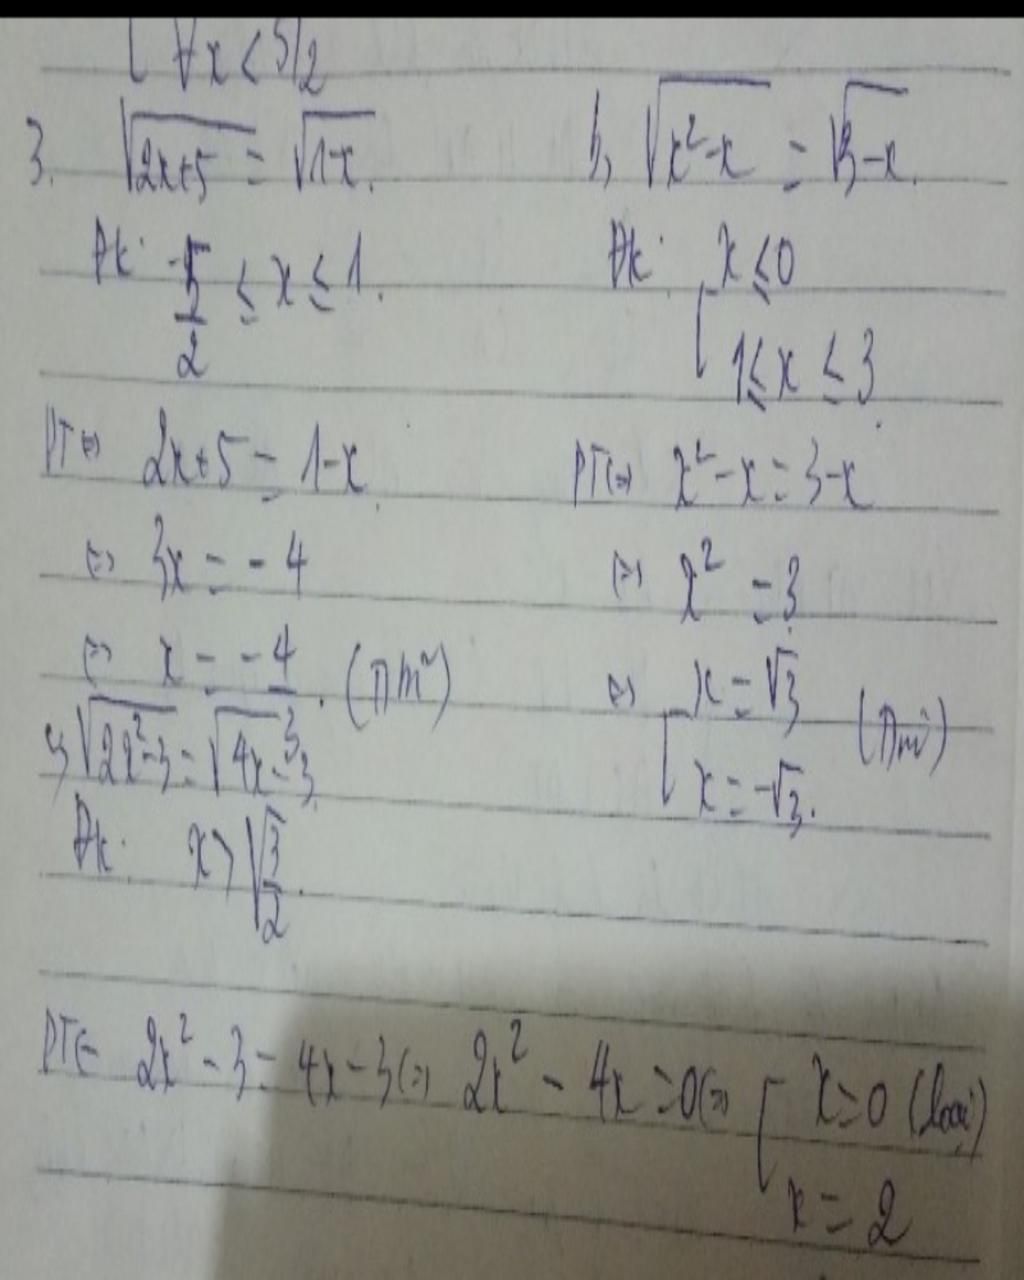 [ ∀x < 5/2
3. √(2x+5) = √(1-x).
Đk: -5/2 ≤ x ≤ 1.
PT⇔ 2x+5 = 1-x
⇔ 3x = -4
⇔ x = -4/3. (TM)
b, √(x²-x) = √(3-x).
Đk: [ x ≤ 0
1 ≤ x ≤ 3.
PT⇔ x²-x = 3-x
⇔ x² = 3
⇔ [ x = √3
x = -√3. (TM)
√(2x²-3) = √(4x-3)
Đk: x > √(3/2).
PT⇔ 2x² - 3 = 4x - 3 ⇔ 2x² - 4x = 0 ⇔ [ x = 0 (loại)
x = 2